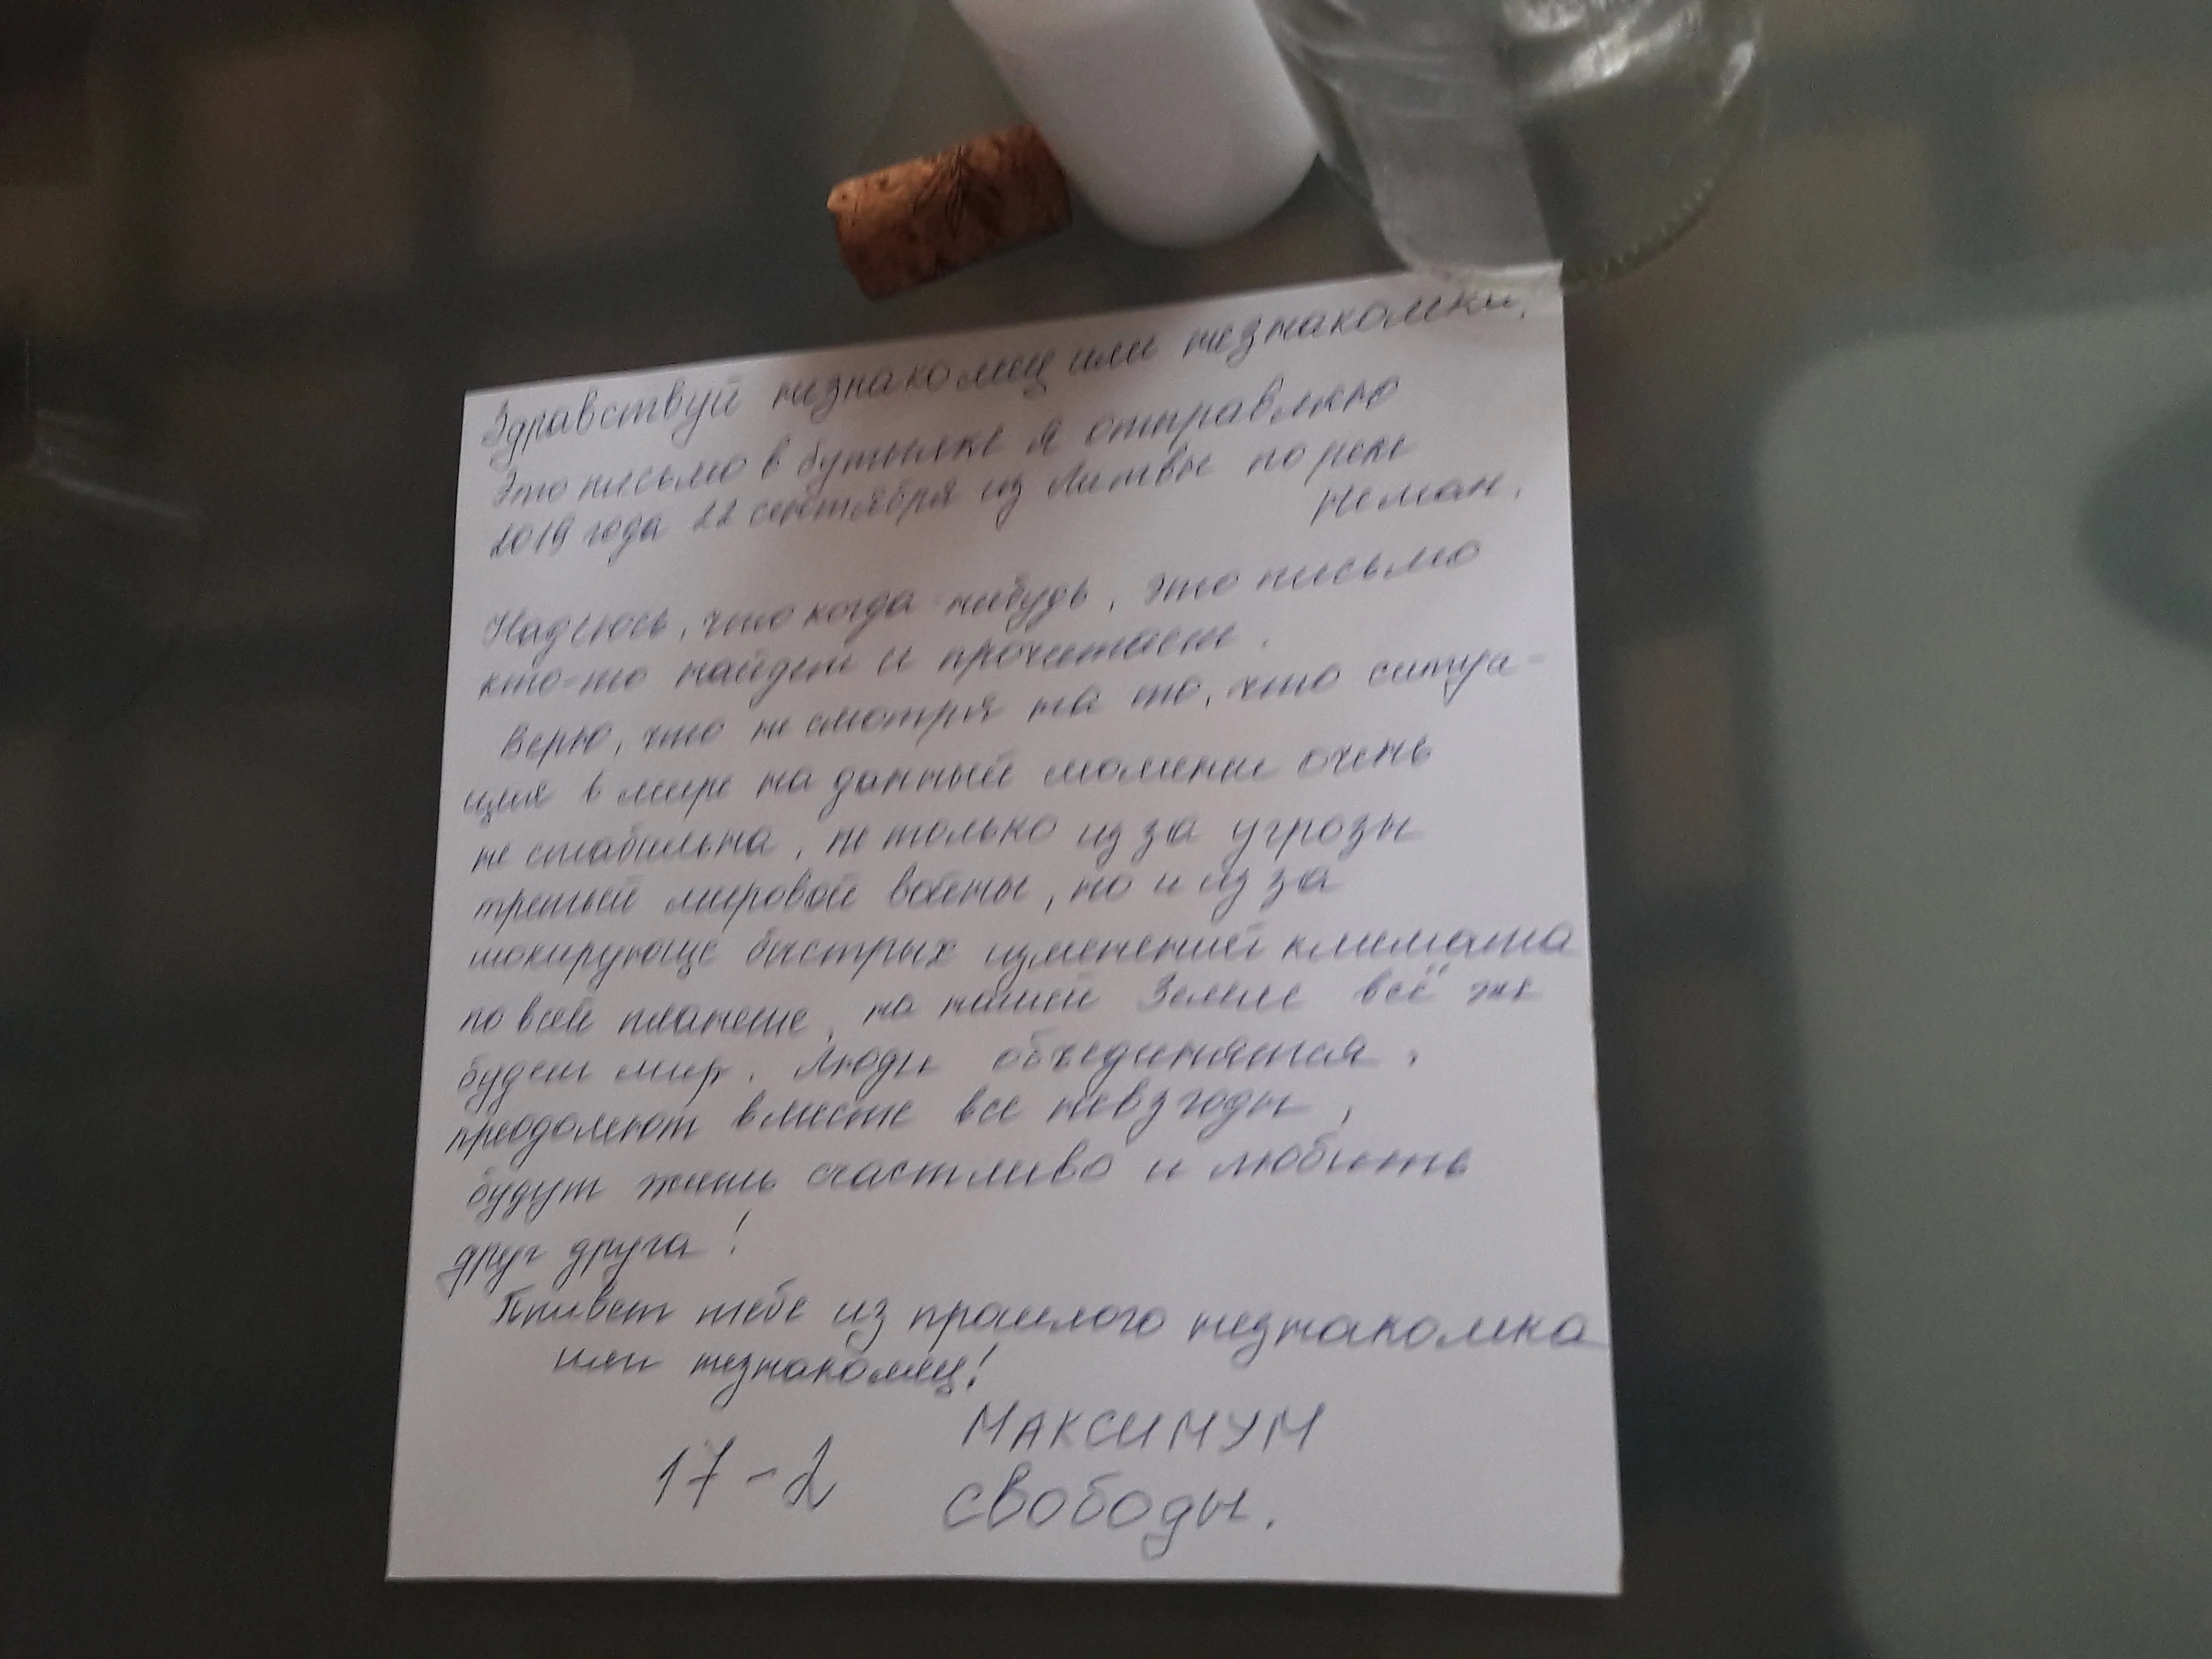 Здравствуй незнакомец или незнакомка.
Это письмо в бутылке я отправляю
2019 года 22 сентября из Литвы по реке
Неман.
Надеюсь, что когда нибудь, это письмо
кто-то найдет и прочитает.
Верю, что не смотря на то, что ситуа-
ция в мире на данный момент очень
не стабильна, не только из за угрозы
третьей мировой войны, но и из за
шокирующе быстрых изменений климата
по всей планете, на нашей Земле всё же
будет мир. Люди объединятся,
преодолеют вместе все невзгоды,
будут жить счастливо и любить
друг друга!
Привет тебе из прошлого незнакомка
или незнакомец!
МАКСИМУМ
17-2 СВОБОДЫ.